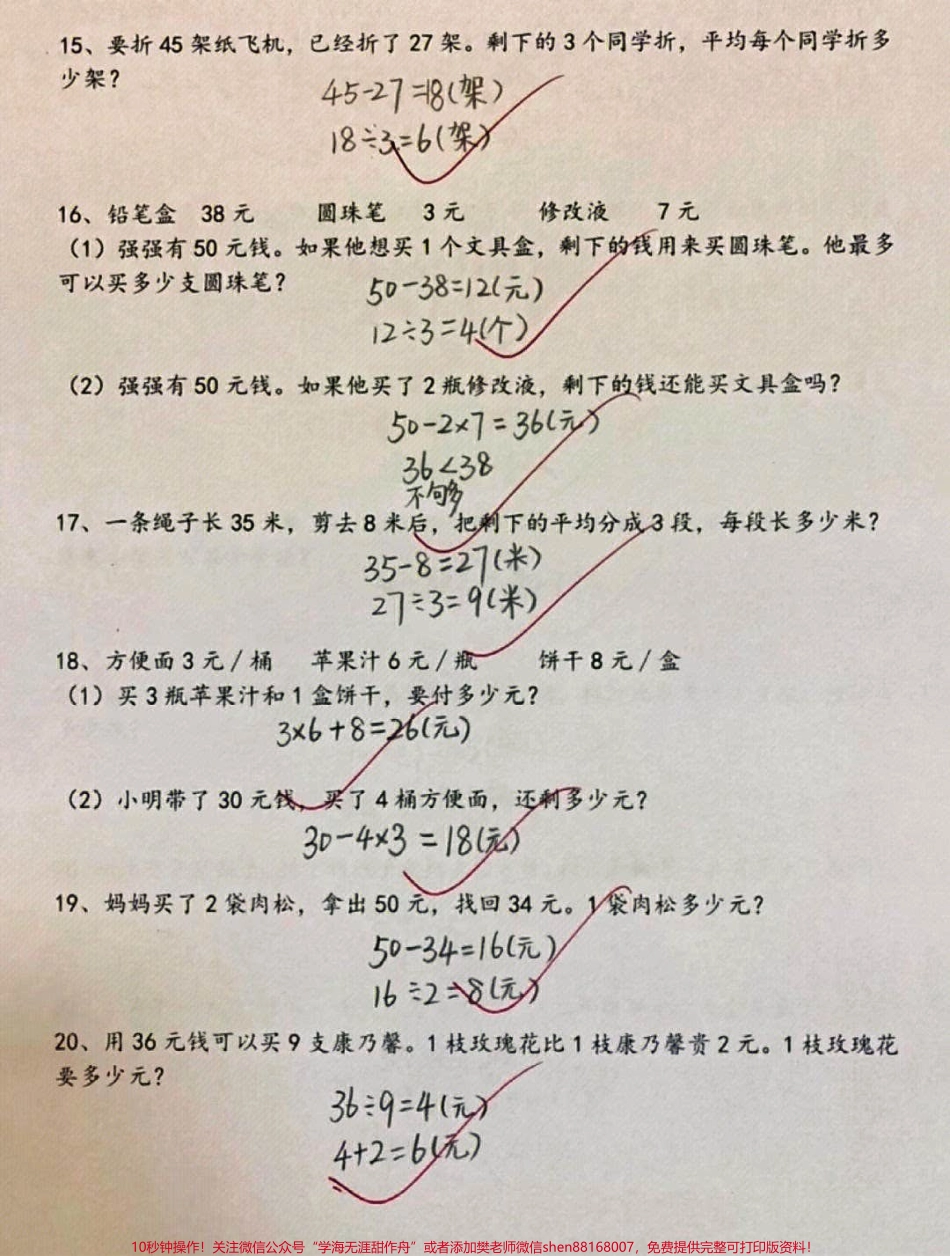 15、要折 45 架纸飞机，已经折了 27 架。剩下的 3 个同学折，平均每个同学折多
少架？
45-27=18(架)
18÷3=6(架)
16、铅笔盒 38 元 圆珠笔 3 元 修改液 7 元
（1）强强有 50 元钱。如果他想买 1 个文具盒，剩下的钱用来买圆珠笔。他最多
可以买多少支圆珠笔？
50-38=12(元)
12÷3=4(个)
（2）强强有 50 元钱。如果他买了 2 瓶修改液，剩下的钱还能买文具盒吗？
50-2×7=36(元)
36<38
不够
17、一条绳子长 35 米，剪去 8 米后，把剩下的平均分成 3 段，每段长多少米？
35-8=27(米)
27÷3=9(米)
18、方便面 3 元／桶 苹果汁 6 元／瓶 饼干 8 元／盒
（1）买 3 瓶苹果汁和 1 盒饼干，要付多少元？
3×6+8=26(元)
（2）小明带了 30 元钱，买了 4 桶方便面，还剩多少元？
30-4×3=18(元)
19、妈妈买了 2 袋肉松，拿出 50 元，找回 34 元。1 袋肉松多少元？
50-34=16(元)
16÷2=8(元)
20、用 36 元钱可以买 9 支康乃馨。1 枝玫瑰花比 1 枝康乃馨贵 2 元。1 枝玫瑰花
要多少元？
36÷9=4(元)
4+2=6(元)
10秒钟操作！关注微信公众号“学海无涯甜作舟”或者添加樊老师微信shen88168007，免费提供完整可打印版资料！